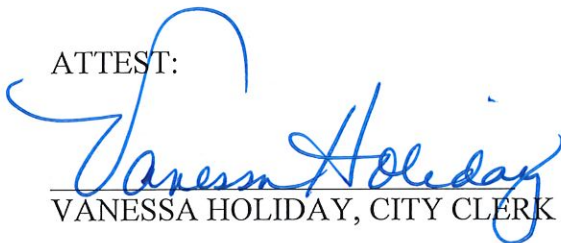 ATTEST:
Vanessa Holiday
VANESSA HOLIDAY, CITY CLERK